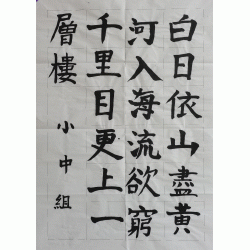 白日依山盡黄
河入海流欲窮
千里目更上一
層樓
小中組